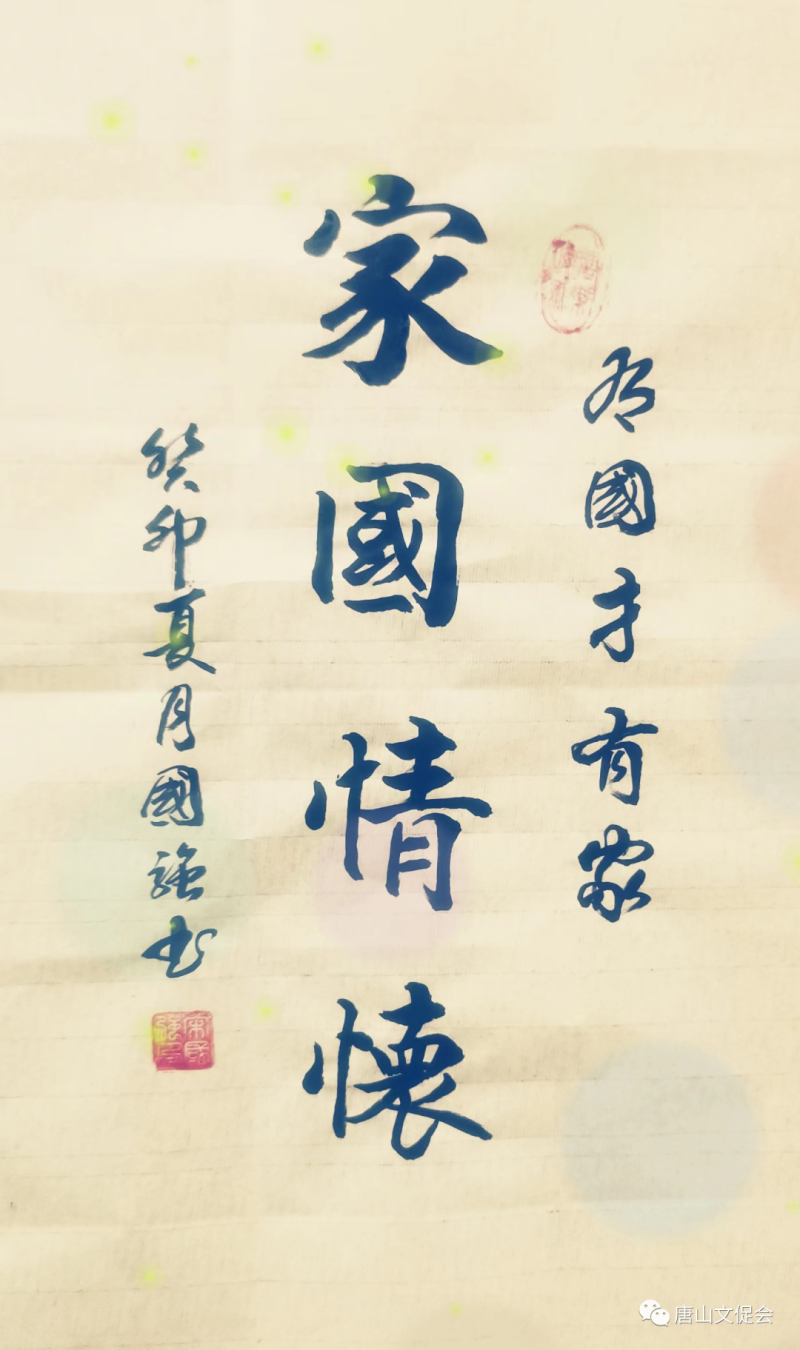 有國才有家
家國情懷
癸卯夏月國強书
唐山文促会